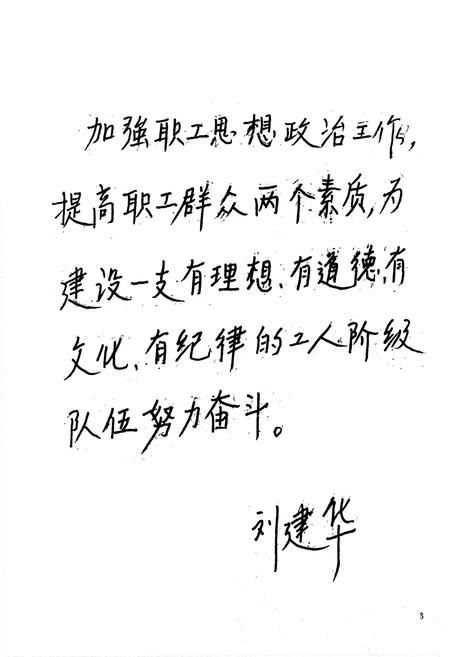 加强职工思想政治工作,
提高职工群众两个素质,为
建设一支有理想、有道德、有
文化、有纪律的工人阶级
队伍努力奋斗。
刘建华
3